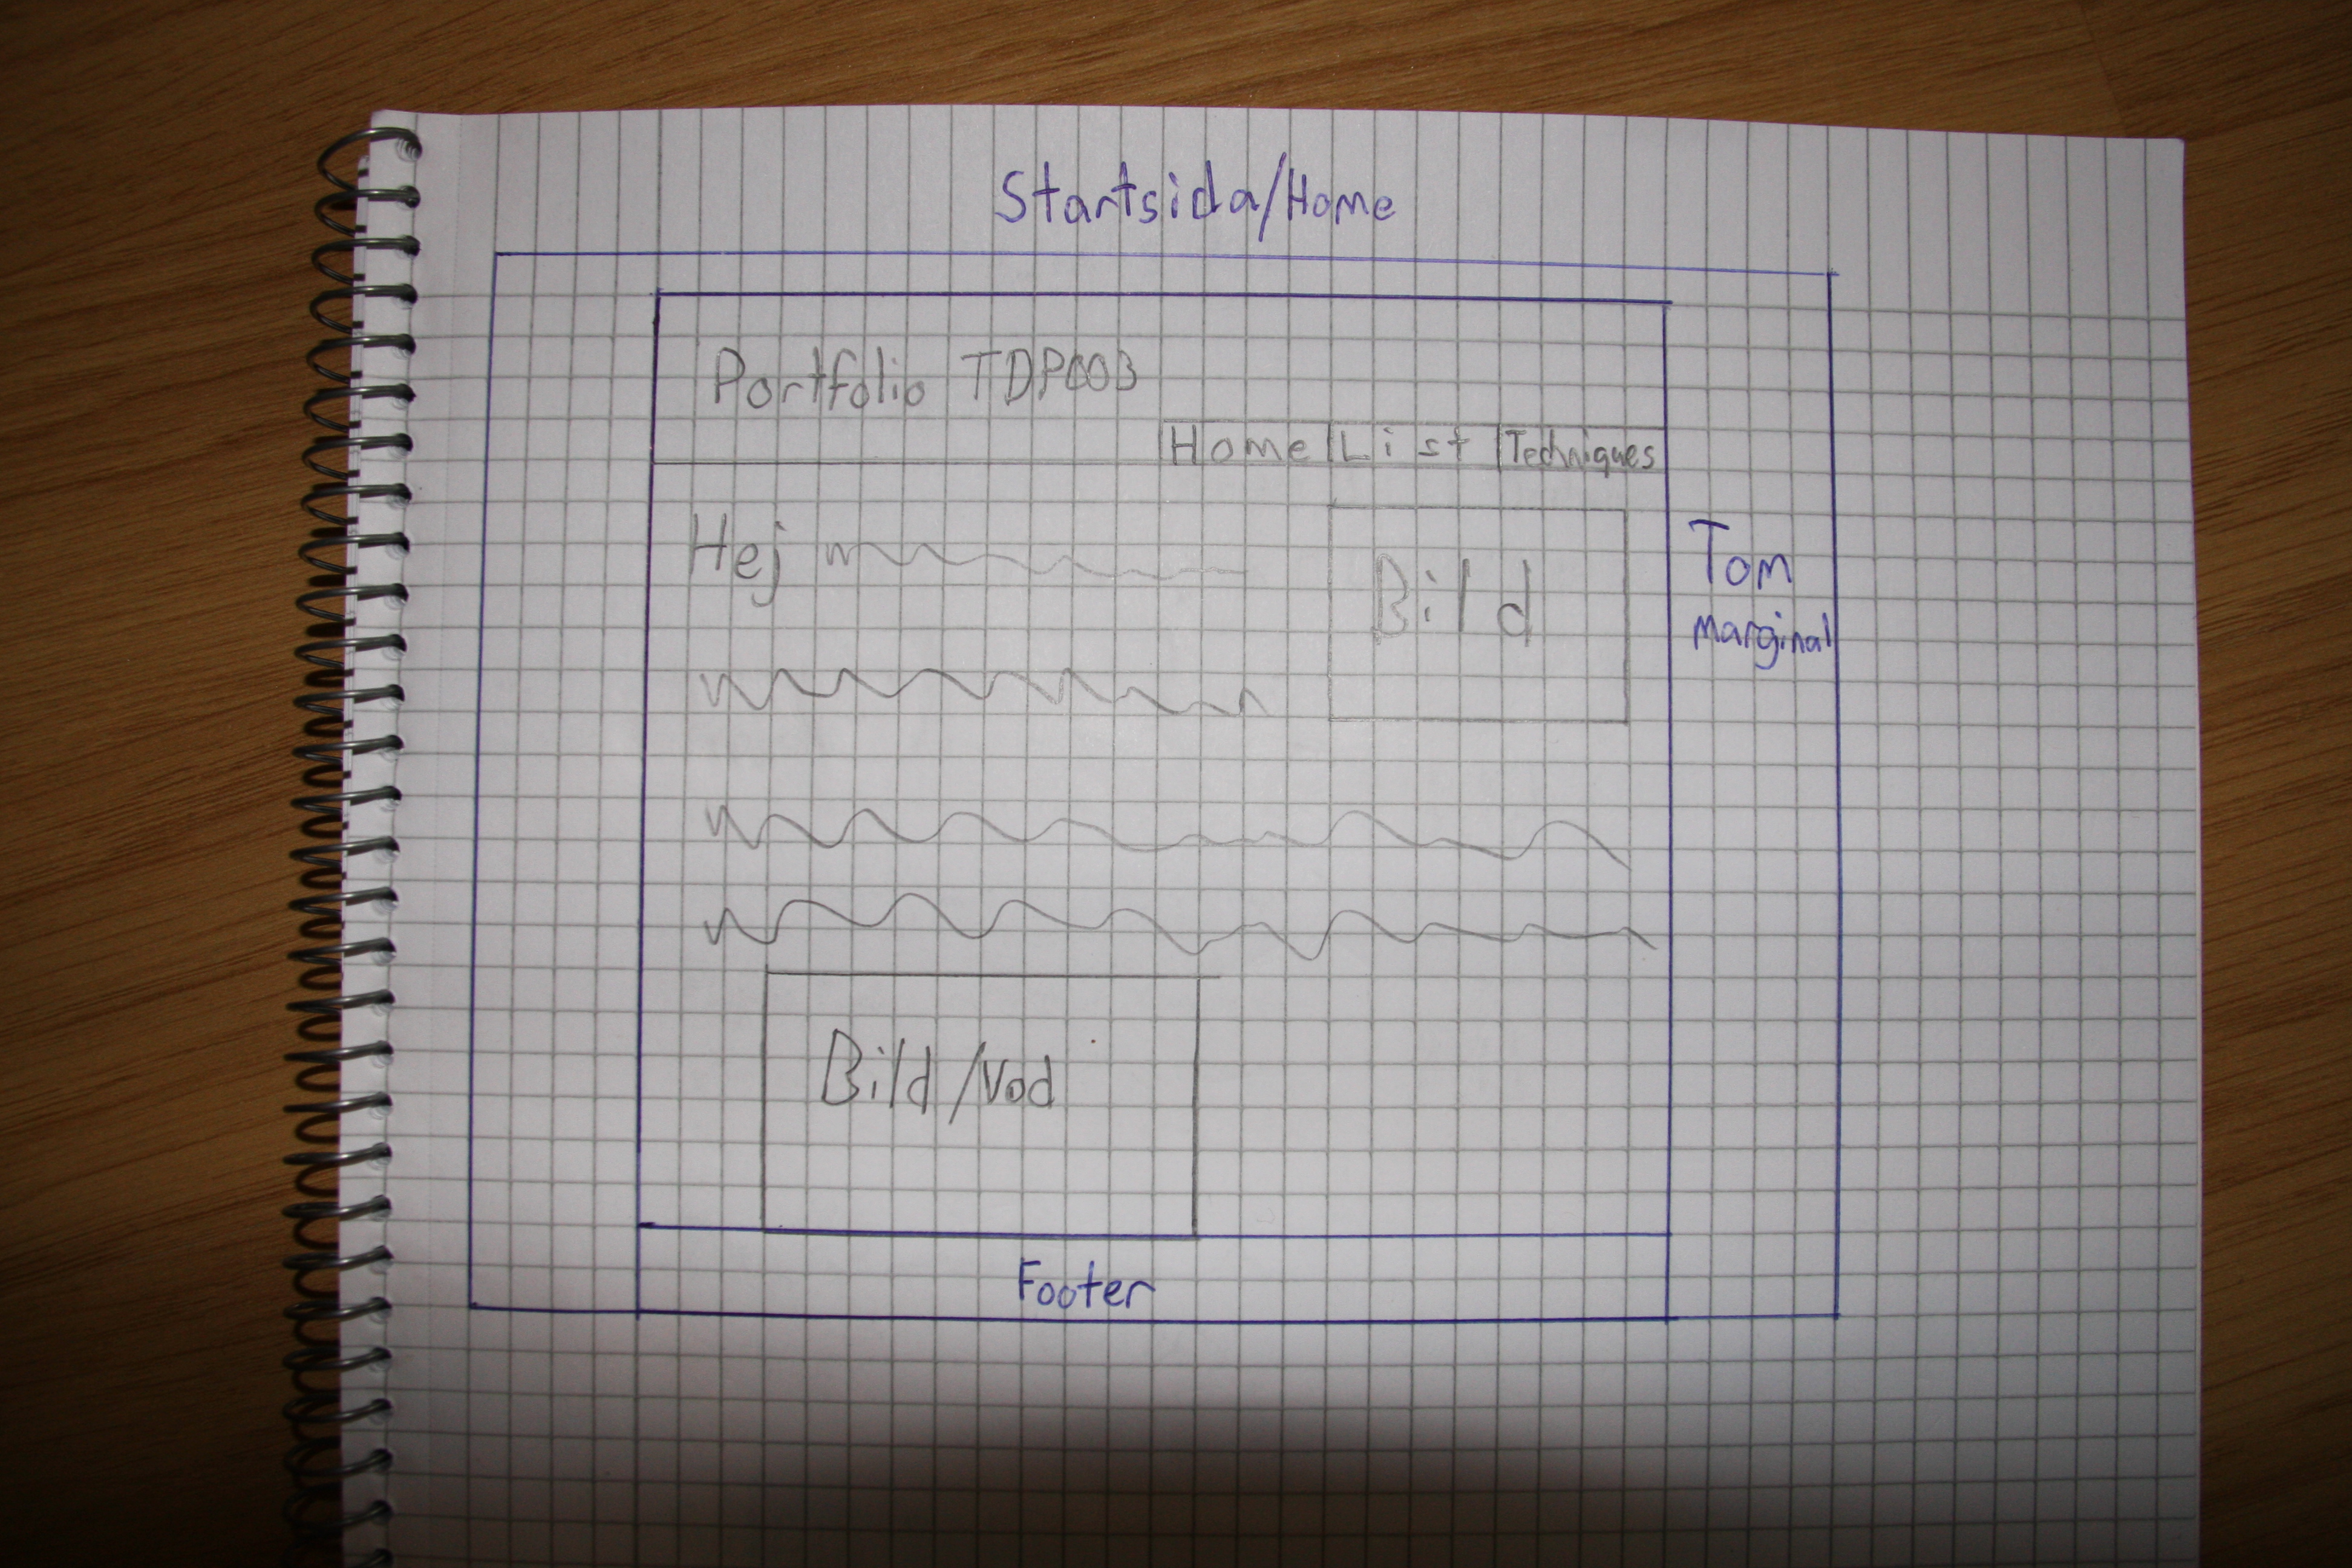 Startsida/Home
Portfolio TDP003
Home List Techniques
Hej
Bild
Tom
marginal
Bild/Vod
Footer